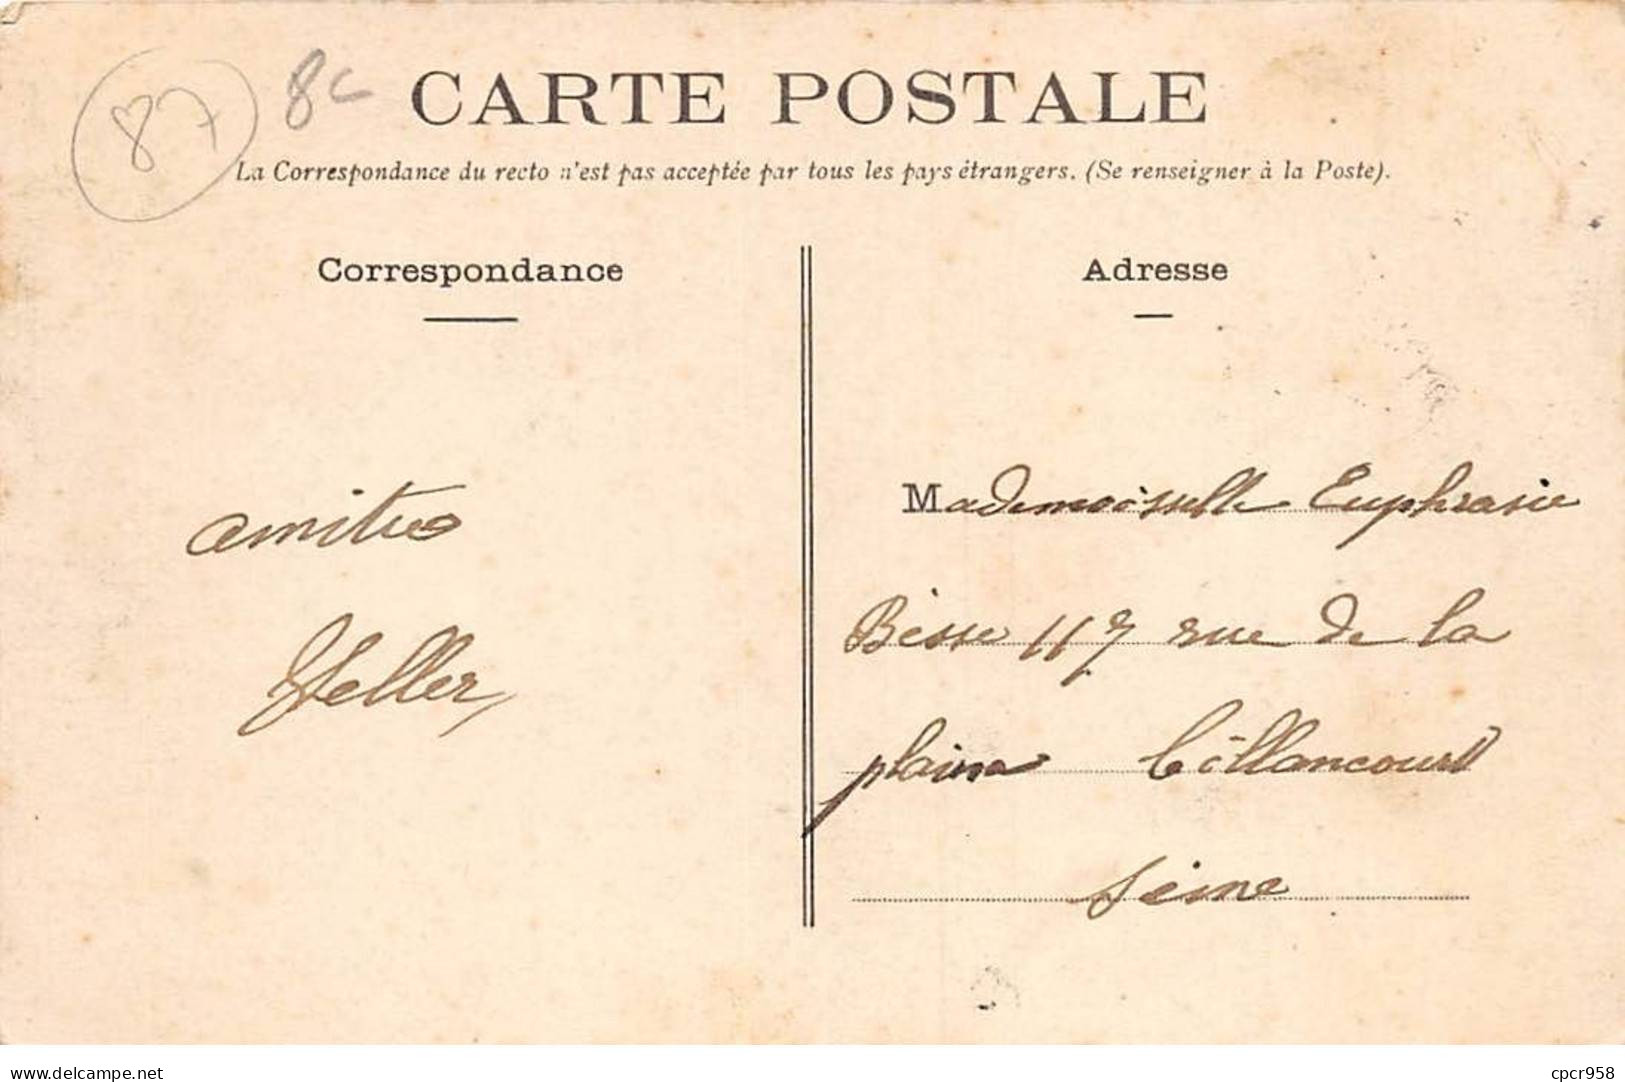 87 8c
CARTE POSTALE
La Correspondance du recto n'est pas acceptée par tous les pays étrangers. (Se renseigner à la Poste).
Correspondance
amitiés
Heller,
Adresse
Mademoiselle Euphrasie
Bèsse 117 rue de la
plaine Billancourt
Seine
delcampe.net
cpcr958